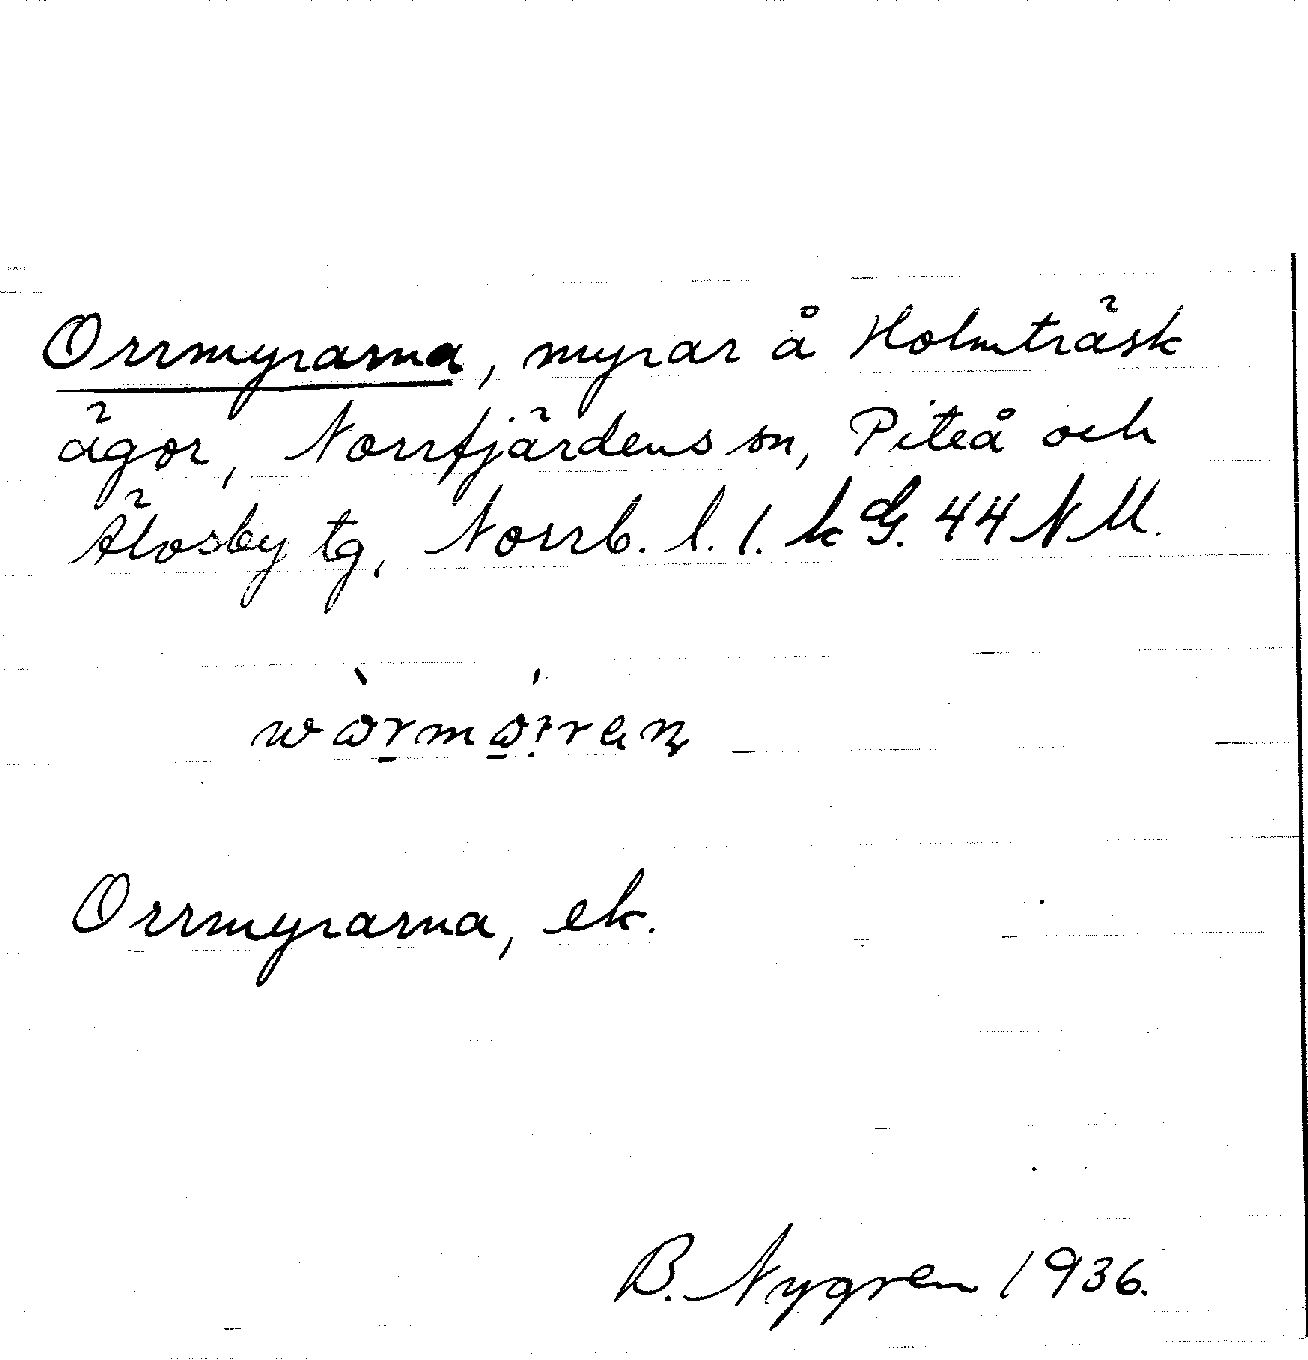 Orrmyrarna, myrar å Holmträsk
ägor, Norrfjärdens sn, Piteå och
Älvsby tg, Norrb. l. 1. k G. 44 N M.
Orrmyrarna, ek.
B. Nygren 1936.